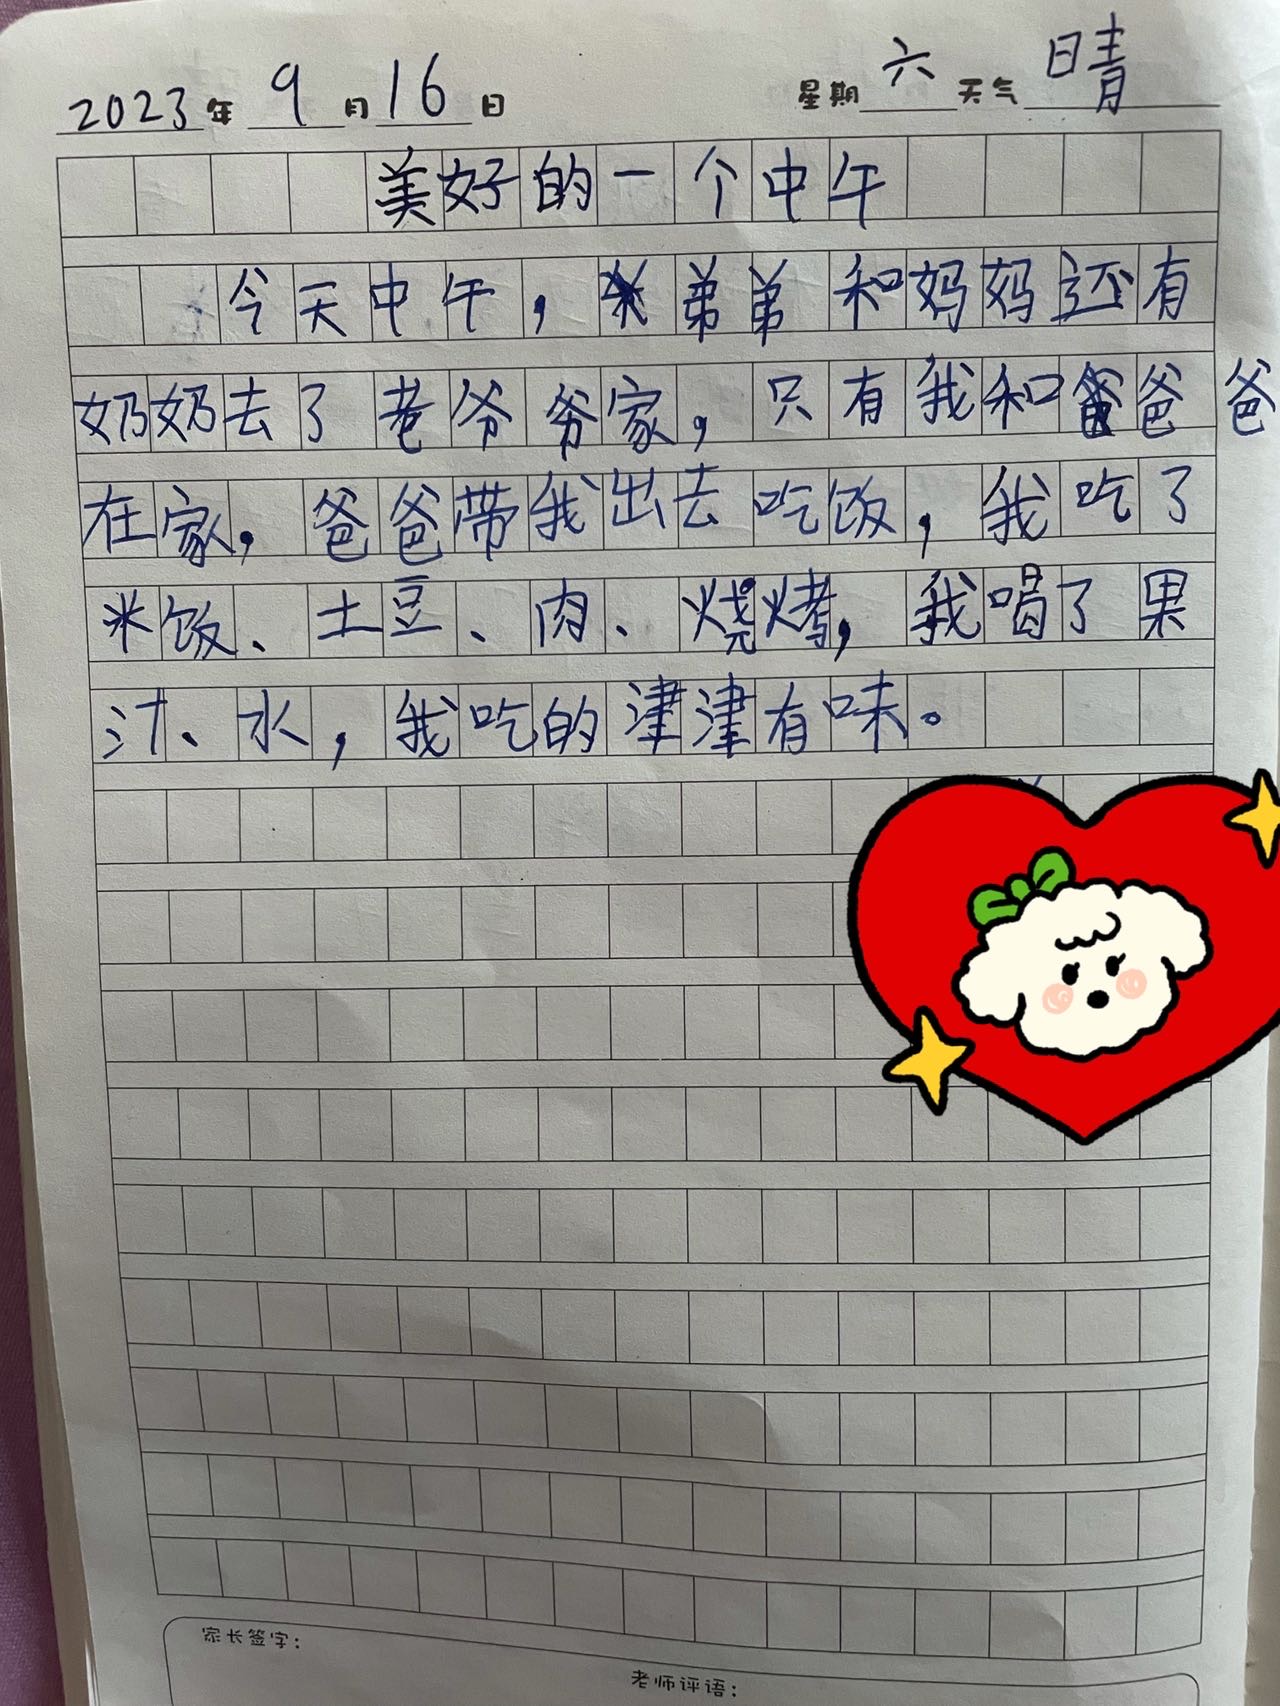 2023年 9月16日 星期六 天气 晴
美好的一个中午
今天中午，弟弟和妈妈还有
奶奶去了老爷爷家，只有我和爸爸
在家，爸爸带我出去吃饭，我吃了
米饭、土豆、肉、烧烤，我喝了果
汁、水，我吃的津津有味。
家长签字：
老师评语：